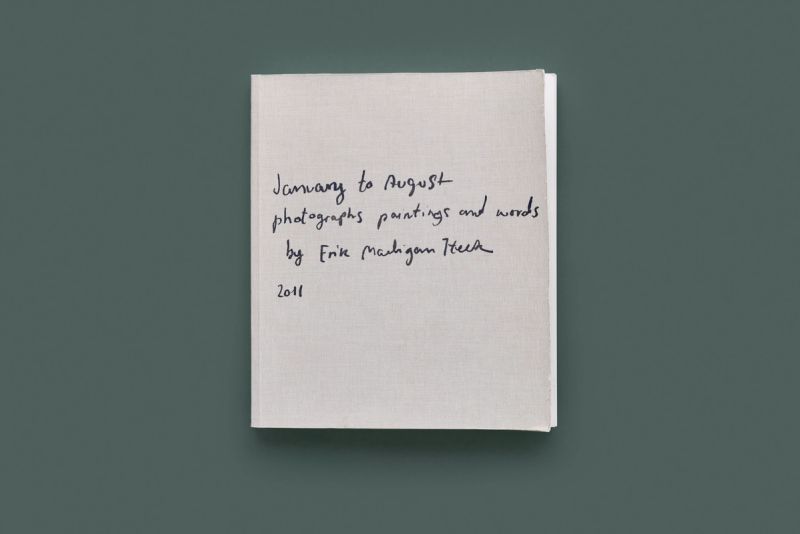 January to August
photographs paintings and words
by Erik Madigan Heck
2011